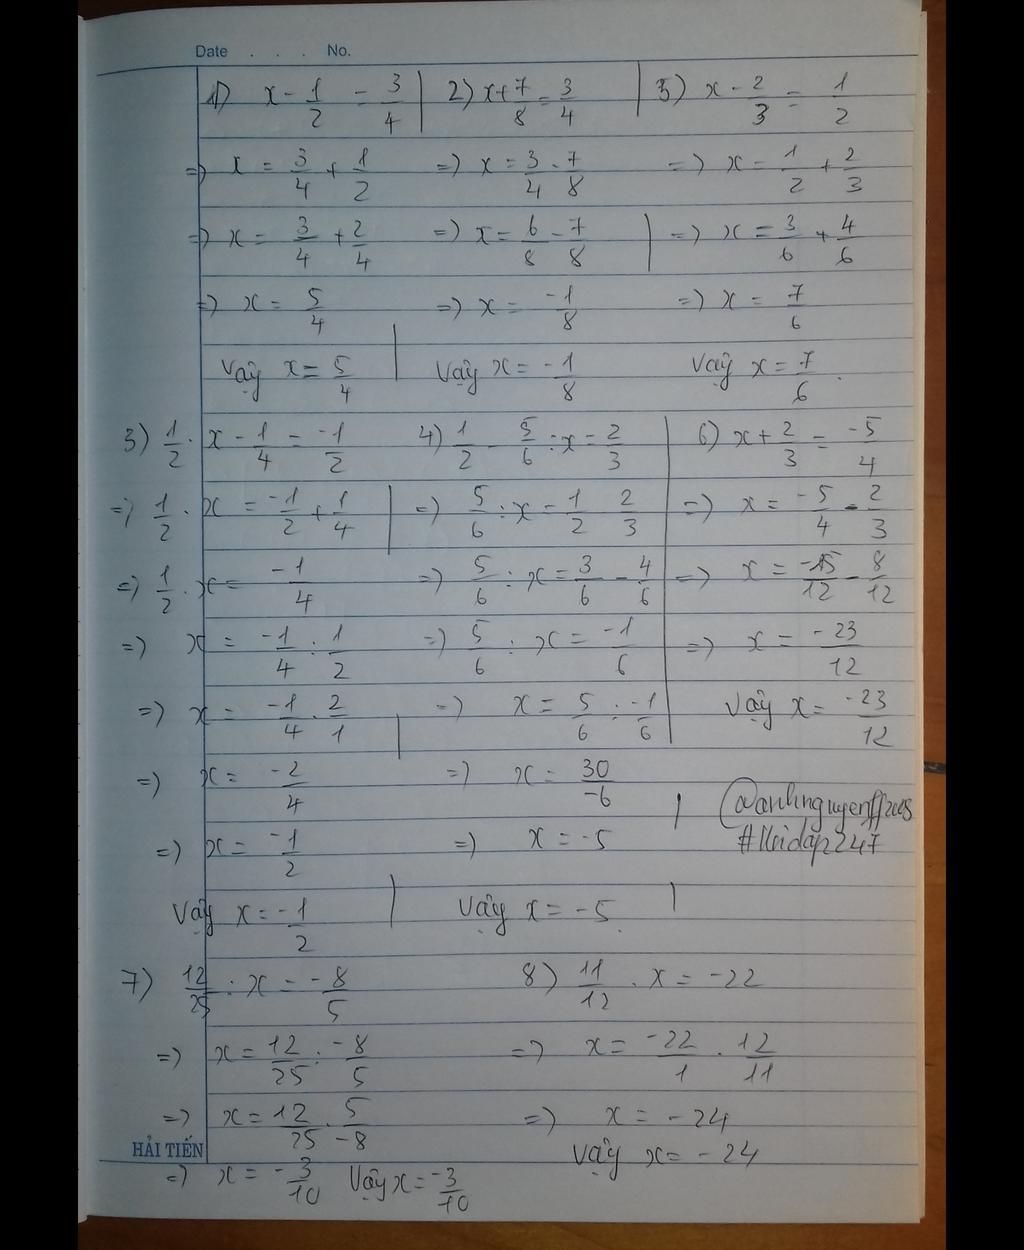 Date . . . No.
1) x - 1/2 = 3/4 | 2) x + 7/8 = 3/4 | 5) x - 2/3 = 1/2
=) x = 3/4 + 1/2 =) x = 3/4 - 7/8 =) x = 1/2 + 2/3
=) x = 3/4 + 2/4 =) x = 6/8 - 7/8 | =) x = 3/6 + 4/6
=) x = 5/4 =) x = -1/8 =) x = 7/6
Vậy x = 5/4 | Vậy x = -1/8 Vậy x = 7/6.
3) 1/2 . x - 1/4 = -1/2 4) 1/2 - 5/6 : x = 2/3 | 6) x + 2/3 = -5/4
=) 1/2 . x = -1/2 + 1/4 | =) 5/6 : x = 1/2 - 2/3 =) x = -5/4 - 2/3
=) 1/2 . x = -1/4 =) 5/6 : x = 3/6 - 4/6 =) x = -15/12 - 8/12
=) x = -1/4 : 1/2 =) 5/6 : x = -1/6 =) x = -23/12
=) x = -1/4 . 2/1 | =) x = 5/6 : -1/6 Vậy x = -23/12
=) x = -2/4 =) x = 30/-6 | @anhnguyenff2005
=) x = -1/2 =) x = -5 #Hoidap247
Vậy x = -1/2 | Vậy x = -5. |
7) 12/25 : x = -8/5 8) 11/12 . x = -22
=) x = 12/25 : -8/5 =) x = -22/1 . 12/11
=) x = 12/25 . 5/-8 =) x = -24
HẢI TIẾN
Vậy x = -24
=) x = -3/10 Vậy x = -3/10